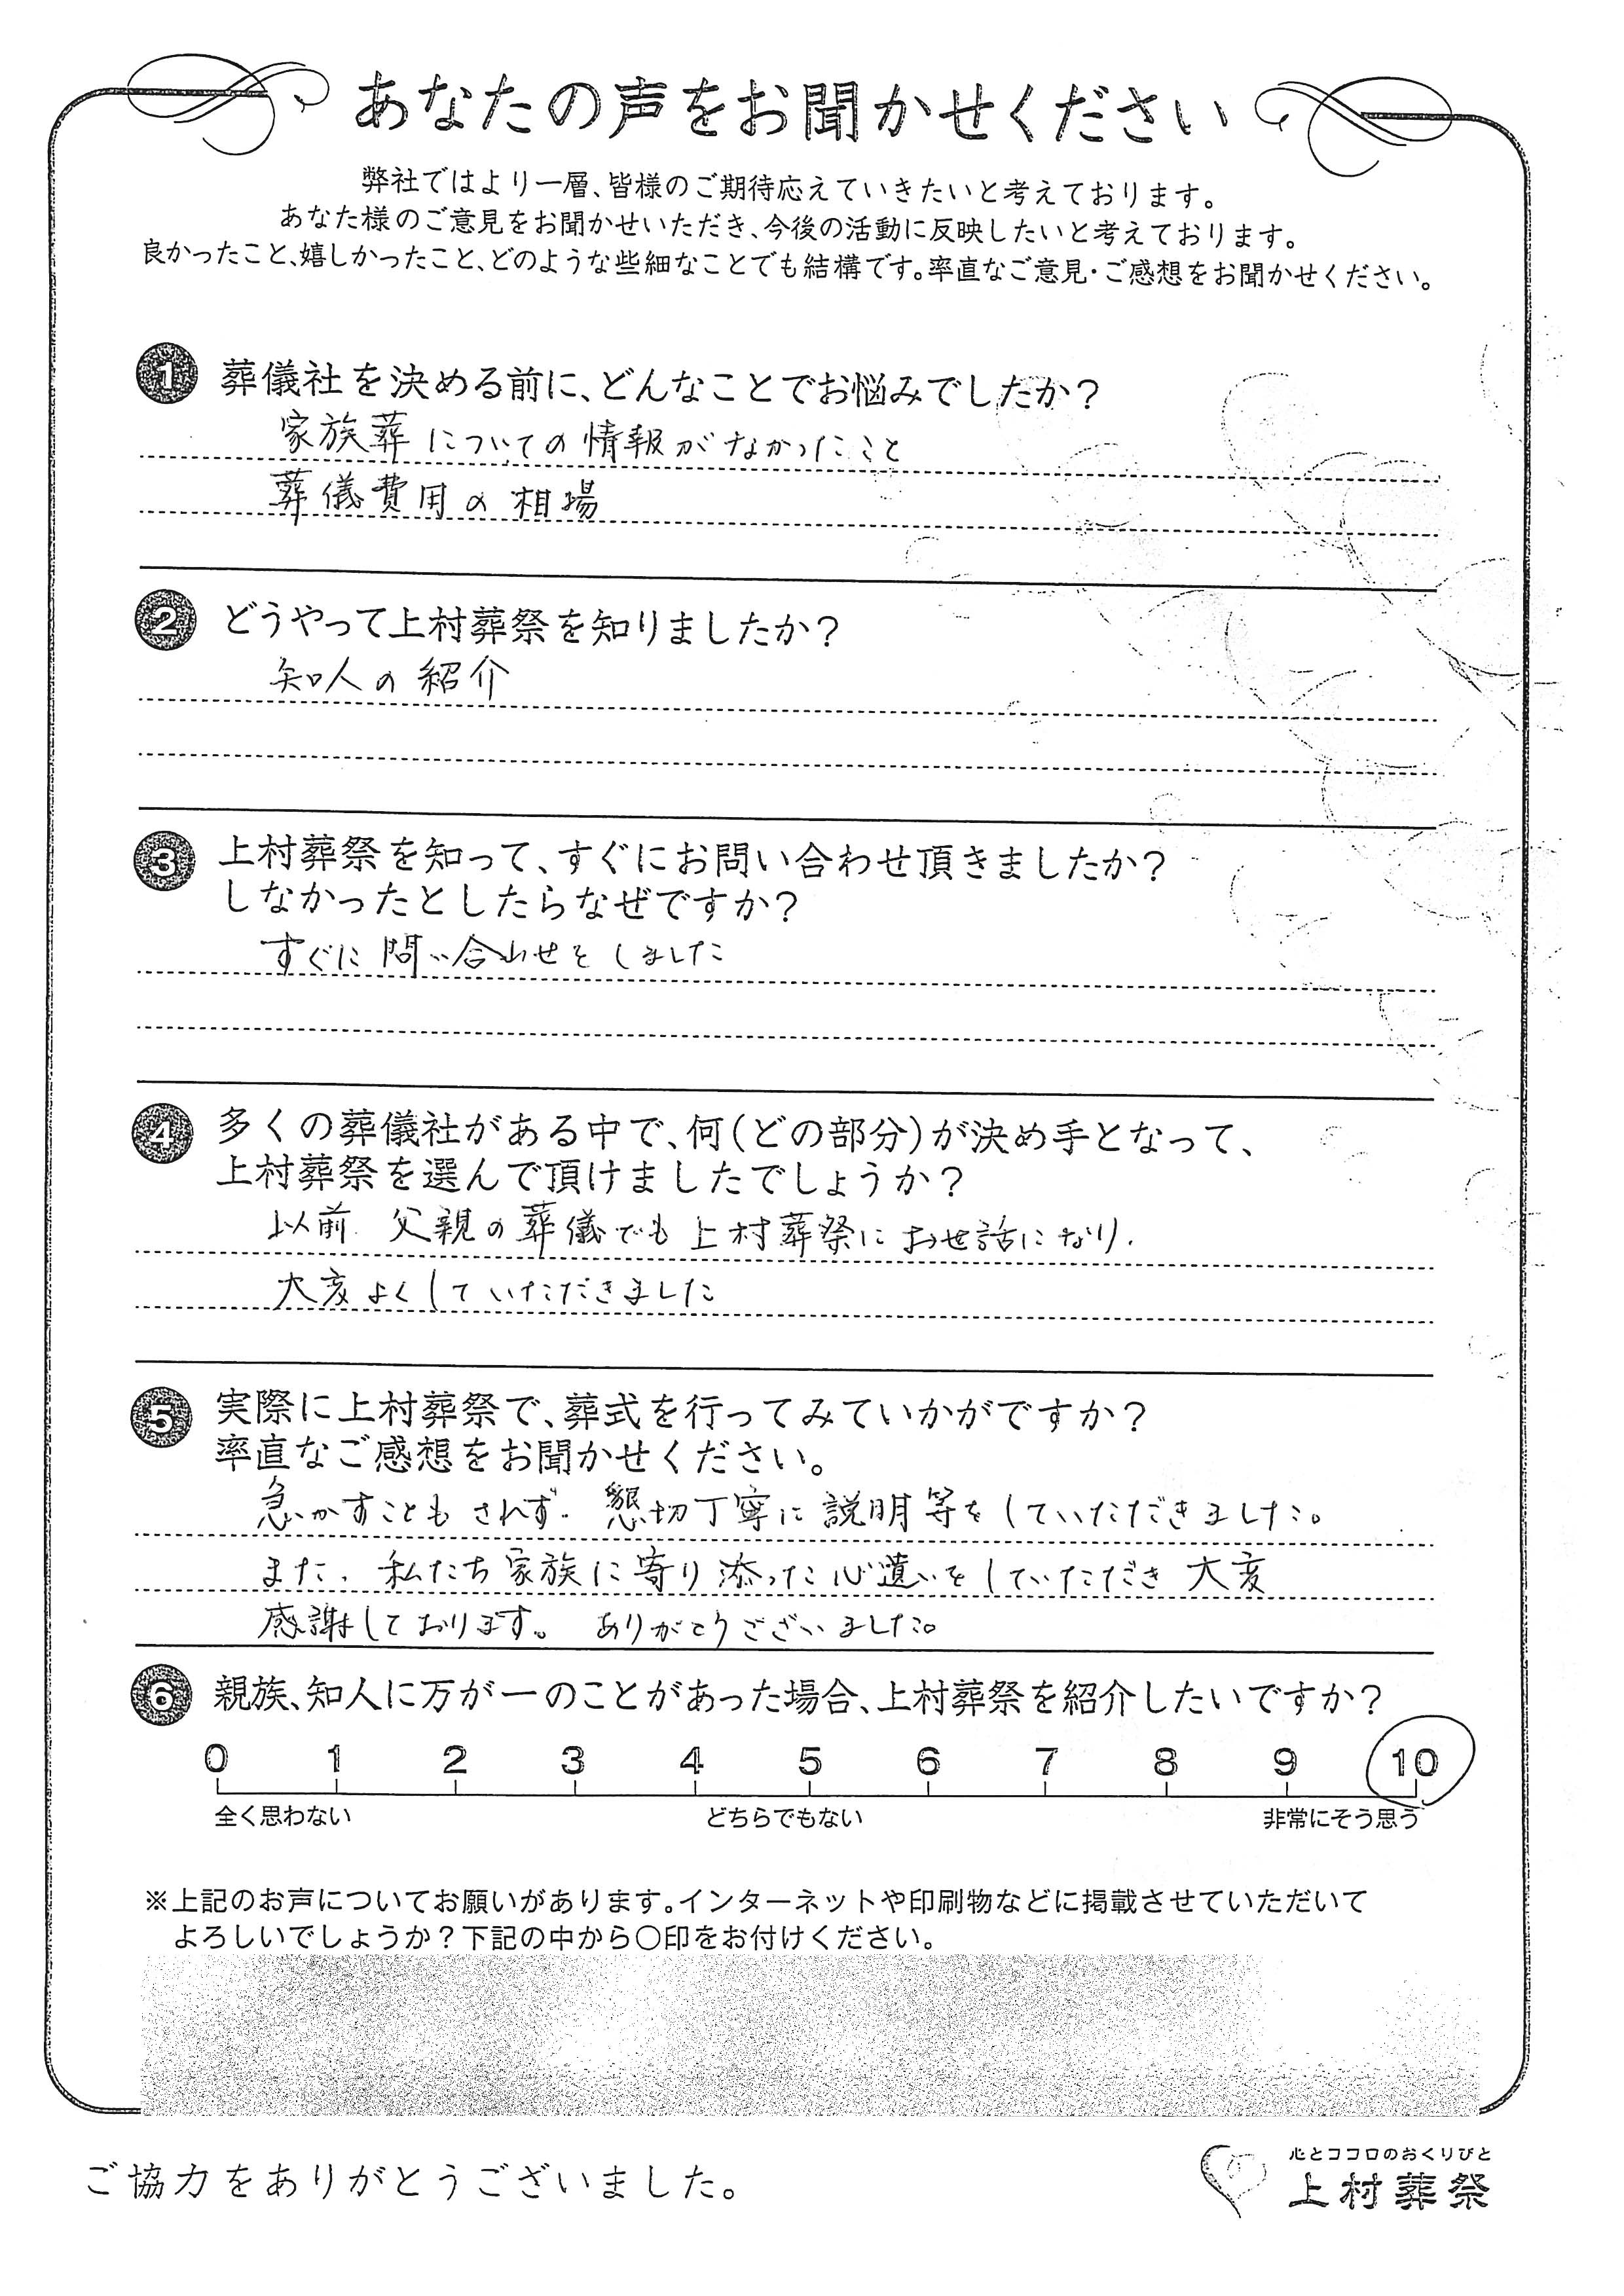 あなたの声をお聞かせください
弊社ではより一層、皆様のご期待応えていきたいと考えております。
あなた様のご意見をお聞かせいただき、今後の活動に反映したいと考えております。
良かったこと、嬉しかったこと、どのような些細なことでも結構です。率直なご意見・ご感想をお聞かせください。
1 葬儀社を決める前に、どんなことでお悩みでしたか?
家族葬についての情報がなかったこと
葬儀費用の相場
2 どうやって上村葬祭を知りましたか?
知人の紹介
3 上村葬祭を知って、すぐにお問い合わせ頂きましたか?
しなかったとしたらなぜですか?
すぐに問い合わせをしました
4 多くの葬儀社がある中で、何(どの部分)が決め手となって、
上村葬祭を選んで頂けましたでしょうか?
以前、父親の葬儀でも上村葬祭にお世話になり、
大変よくしていただきました
5 実際に上村葬祭で、葬式を行ってみていかがですか?
率直なご感想をお聞かせください。
急かすこともされず、懇切丁寧に説明等をしていただきました。
また、私たち家族に寄り添った心遣いをしていただき大変
感謝しております。 ありがとうございました。
6 親族、知人に万が一のことがあった場合、上村葬祭を紹介したいですか?
0 1 2 3 4 5 6 7 8 9 10
全く思わない どちらでもない 非常にそう思う
※上記のお声についてお願いがあります。インターネットや印刷物などに掲載させていただいて
よろしいでしょうか?下記の中から○印をお付けください。
ご協力をありがとうございました。
心とココロのおくりびと
上村葬祭